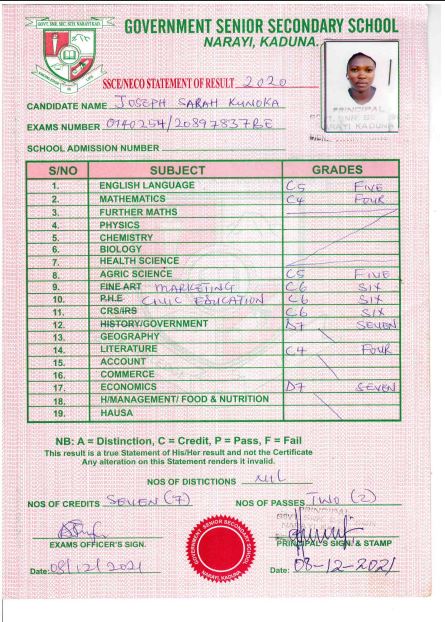 GOVERNMENT SENIOR SECONDARY SCHOOL
NARAYI, KADUNA.
SSCE/NECO STATEMENT OF RESULT 2020
CANDIDATE NAME JOSEPH SARAH KUNOKA
EXAMS NUMBER 0140254/20897837BE
SCHOOL ADMISSION NUMBER
PRINCIPAL
NARAYI KADUNA
S/NO SUBJECT GRADES
1. ENGLISH LANGUAGE C5 FIVE
2. MATHEMATICS C4 FOUR
3. FURTHER MATHS
4. PHYSICS
5. CHEMISTRY
6. BIOLOGY
7. HEALTH SCIENCE
8. AGRIC SCIENCE C5 FIVE
9. FINE ART MARKETING C6 SIX
10. P.H.E CIVIC EDUCATION C6 SIX
11. CRS/IRS C6 SIX
12. HISTORY/GOVERNMENT D7 SEVEN
13. GEOGRAPHY
14. LITERATURE C4 FOUR
15. ACCOUNT
16. COMMERCE
17. ECONOMICS D7 SEVEN
18. H/MANAGEMENT/ FOOD & NUTRITION
19. HAUSA
NB: A = Distinction, C = Credit, P = Pass, F = Fail
This result is a true Statement of His/Her result and not the Certificate
Any alteration on this Statement renders it invalid.
NOS OF DISTICTIONS NIL
NOS OF CREDITS SEVEN (7) NOS OF PASSES TWO (2)
PRINCIPAL
GOVERNMENT SENIOR SECONDARY SCHOOL
NARAYI, KADUNA
EXAMS OFFICER'S SIGN. PRINCIPAL'S SIGN. & STAMP
Date: 08/12/2021 Date: 08-12-2021